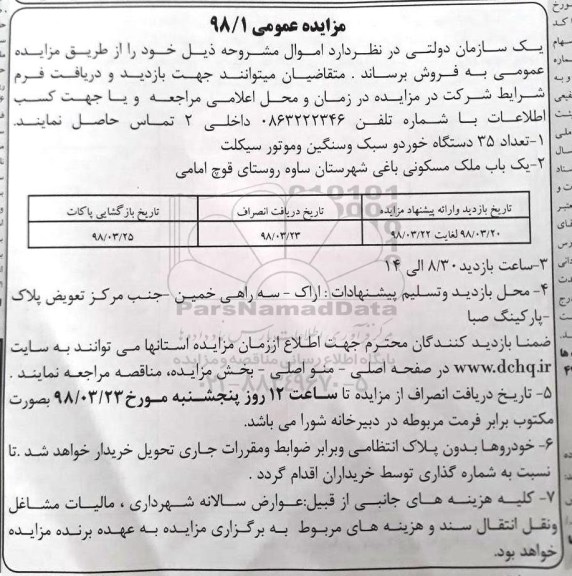 مزایده عمومی ۹۸/۱
یک سازمان دولتی در نظردارد اموال مشروحه ذیل خود را از طریق مزایده
عمومی به فروش برساند . متقاضیان میتوانند جهت بازدید و دریافت فرم
شرایط شرکت در مزایده در زمان و محل اعلامی مراجعه و یا جهت کسب
اطلاعات با شماره تلفن ۰۸۶۳۲۲۲۳۴۶ داخلی ۲ تماس حاصل نمایند.
۱-تعداد ۳۵ دستگاه خوردو سبک وسنگین وموتور سیکلت
۲-یک باب ملک مسکونی باغی شهرستان ساوه روستای قوچ امامی
تاریخ بازدید وارائه پیشنهاد مزایده تاریخ دریافت انصراف تاریخ بازگشایی پاکات
۹۸/۰۳/۲۰ لغایت ۹۸/۰۳/۲۲ ۹۸/۰۳/۲۳ ۹۸/۰۳/۲۵
۳-ساعت بازدید ۸/۳۰ الی ۱۴
۴- محل بازدید وتسلیم پیشنهادات : اراک - سه راهی خمین -جنب مرکز تعویض پلاک
-پارکینگ صبا
ParsNamadData
ضمنا بازدید کنندگان محترم جهت اطلاع اززمان مزایده استانها می توانند به سایت
www.dchq.ir در صفحه اصلی - منو اصلی - بخش مزایده، مناقصه مراجعه نمایند .
۵- تاریخ دریافت انصراف از مزایده تا ساعت ۱۲ روز پنجشنبه مورخ ۹۸/۰۳/۲۳ بصورت
مکتوب برابر فرمت مربوطه در دبیرخانه شورا می باشد.
۶- خودروها بدون پلاک انتظامی وبرابر ضوابط ومقررات جاری تحویل خریدار خواهد شد .تا
نسبت به شماره گذاری توسط خریداران اقدام گردد .
۷- کلیه هزینه های جانبی از قبیل:عوارض سالانه شهرداری ، مالیات مشاغل
ونقل انتقال سند و هزینه های مربوط به برگزاری مزایده به عهده برنده مزایده
خواهد بود.